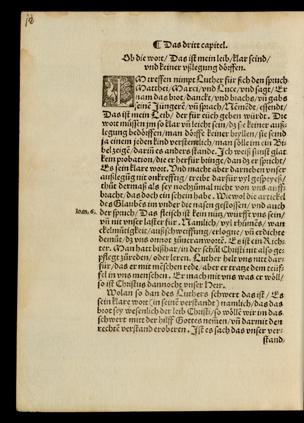 ¶ Das dritt capitel.
Ob die wort/ Das ist mein leib/ klar seind/
vnd keiner vßlegung dörffen.
IM treffen nimpt Luther für sich den spruch
Matthei/ Marci/ vnd Luce/ vnd sagt/ Er
nam das brot/ danckt/ vnd brachs/ vñ gabs
seinẽ Jungerẽ/ vñ sprach/ Nẽmẽd/ essendt/
Das ist mein Leib/ der für euch geben würdt. Die
wort müssen jm so klar vñ leicht sein/ dz sie keiner auß-
legung bedörffen/ man dörffe keiner bryllen/ sie seind
ja einem jeden kind verstentlich/ man sölle im ein Bi-
bel zeigẽ/ darũ es anders stande. Ich weiß sunst
kein probation/ die er herfür bringe/ dan dz er spricht/
Es sein klare wort. Vnd macht aber darneben vnser
außlegũg nit onkrefftig/ treibt darfür vyl gespeyeß/
thüt dermaß als sey noch zũmal nicht von vns auff
bracht/ das doch ein schein habe. Wiewol die artickel
des Glaubẽs im vnder die nasen gestossen/ vnd auch
Ioan. 6. der spruch/ Das fleisch ist kein nütz/ würfft vns sein/
vñ nit vnser laster für. Namlich/ vyl rhümẽs/ wan
ckelmütigkeit/ außschweiffung/ erlogne/ vñ erdichte
demüt/ dz vns onnot zũuerantwortẽ. Es ist ein Rich-
ter. Man hatt bißhar/ in der schůl Christi nit also ge-
pfleget zůreden/ oder leren. Luther helt vns nitt dar-
für/ das er mit mẽschen rede/ aber er tranz dem teuf-
fel in vns menschen. Er mach mit vns was er wöll/
so ist Christus dannocht vnser Herr.
Wolan so dan des Luthers schwert das ist/ Es
sein klare wort (in seinẽ verstandt) namlich/ das das
brot sey wesenlich der leib Christi/ so wöllẽ wir in das
schwert mitt der hilff Gottes nemen/ vñ darmit den
rechtẽ verstand eroberen. Ist es sach das vnser ver-
stand/